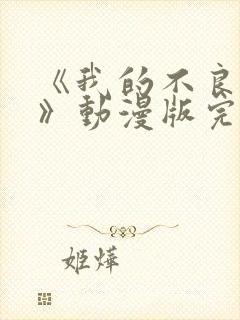 《我的不良
》動漫版完
姬燁